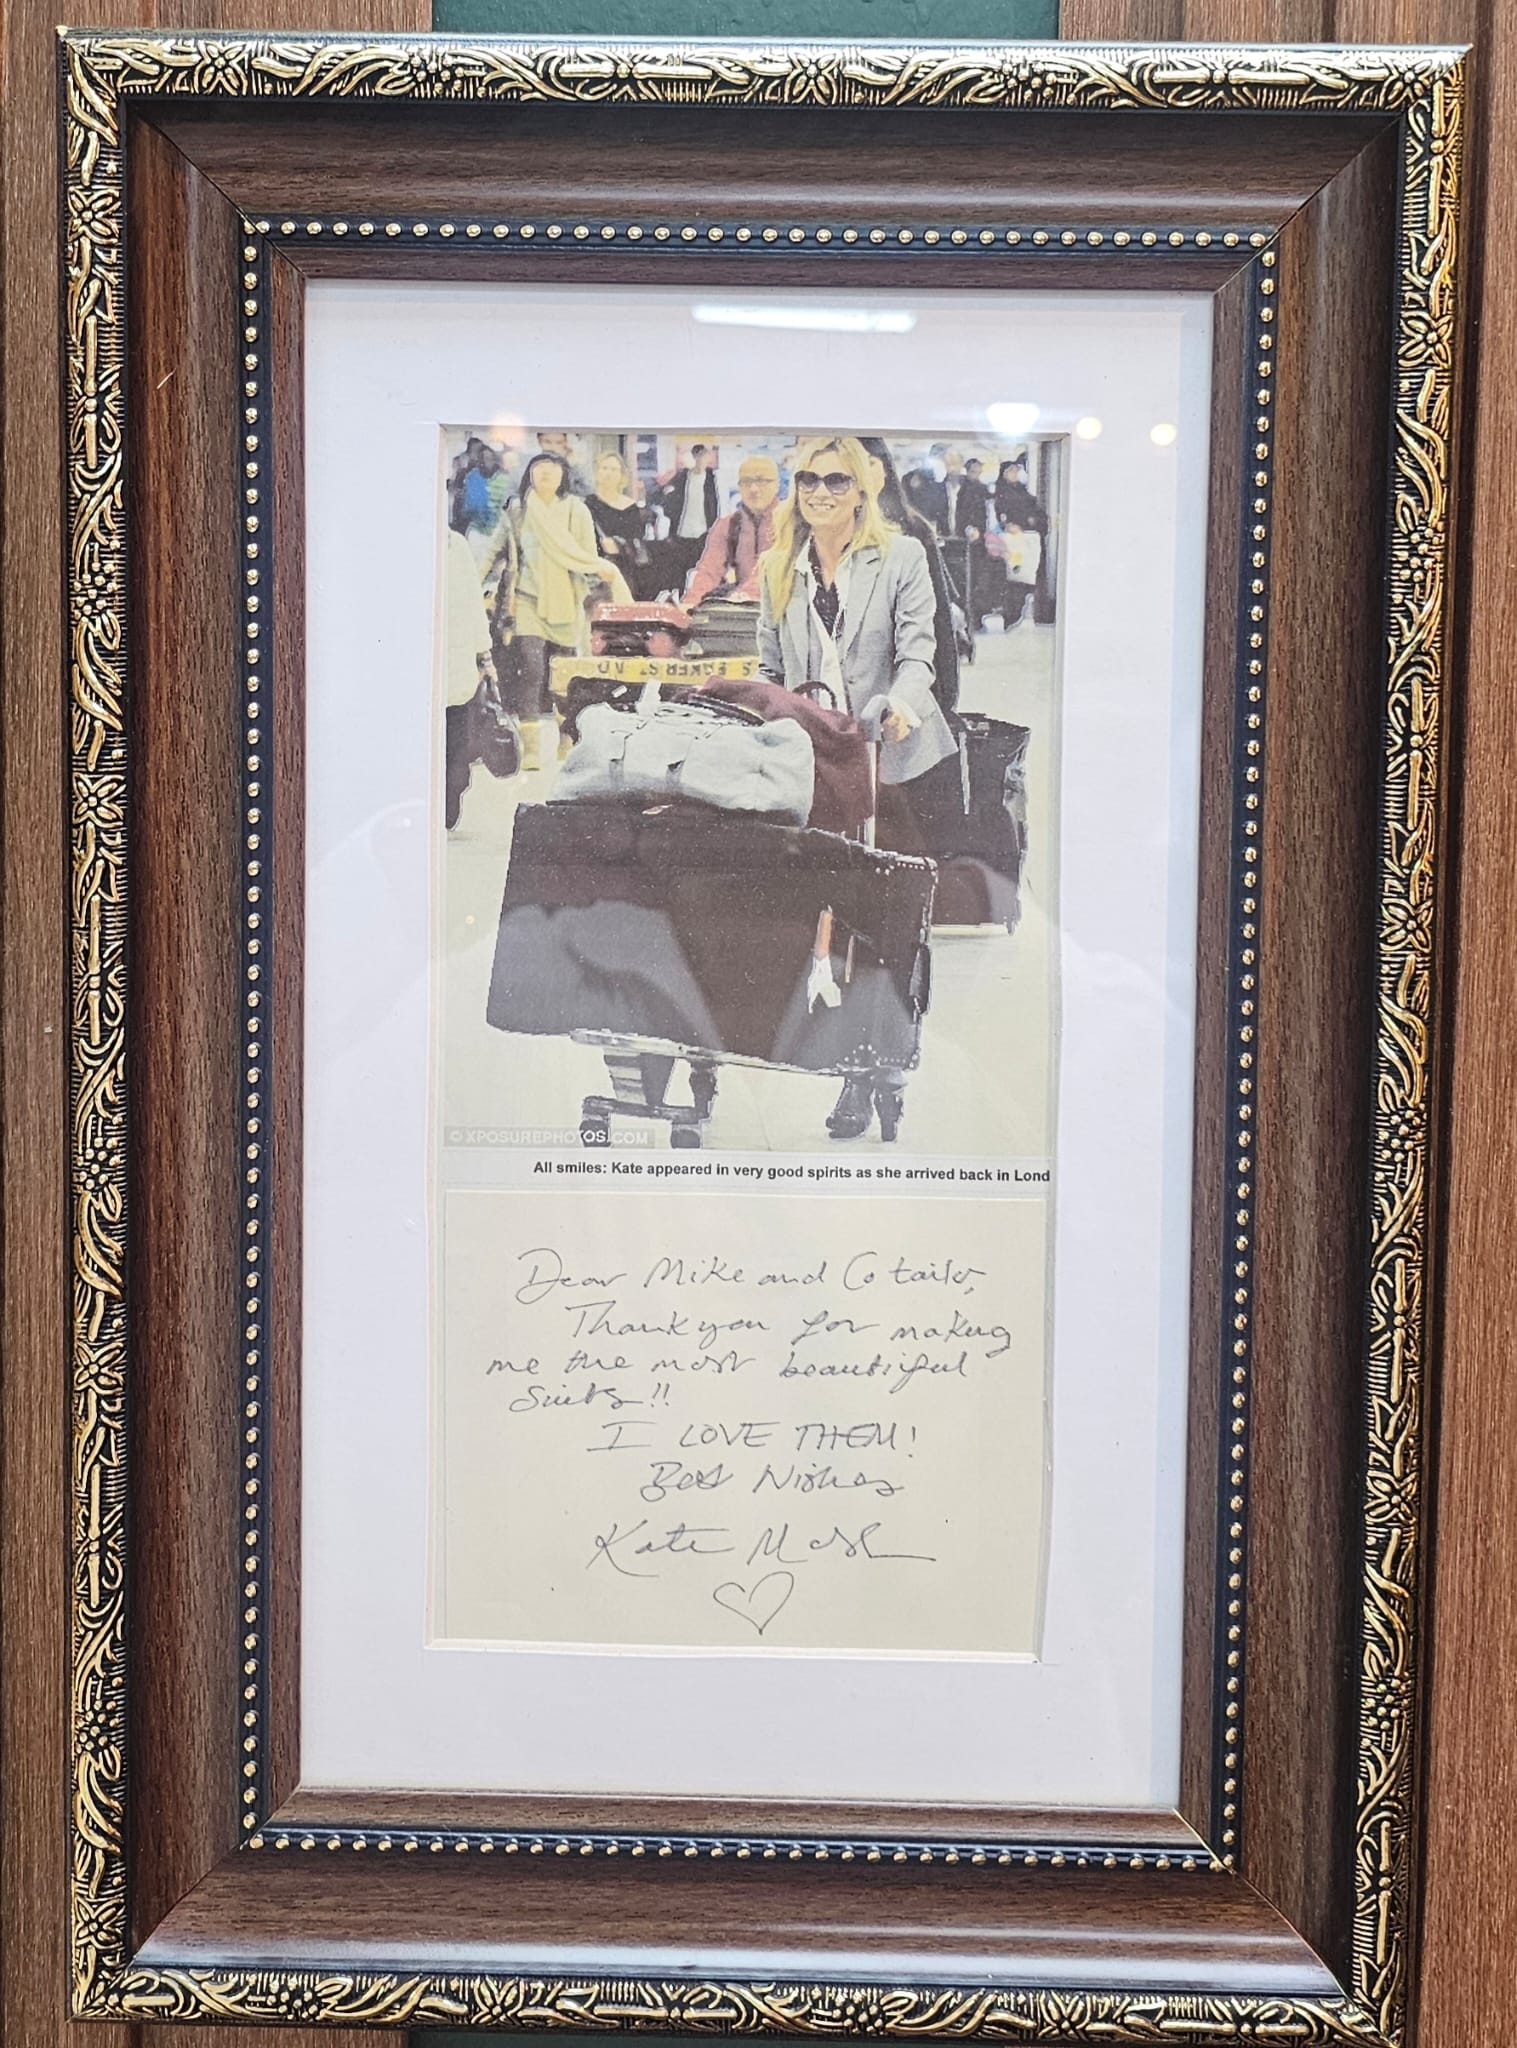 S BAKER ST NO
© XPOSUREPHOTOS.COM
All smiles: Kate appeared in very good spirits as she arrived back in Lond
Dear Mike and Co tailor,
Thank you for making
me the most beautiful
Suits!!
I LOVE THEM!
Best Wishes
Kate Moss